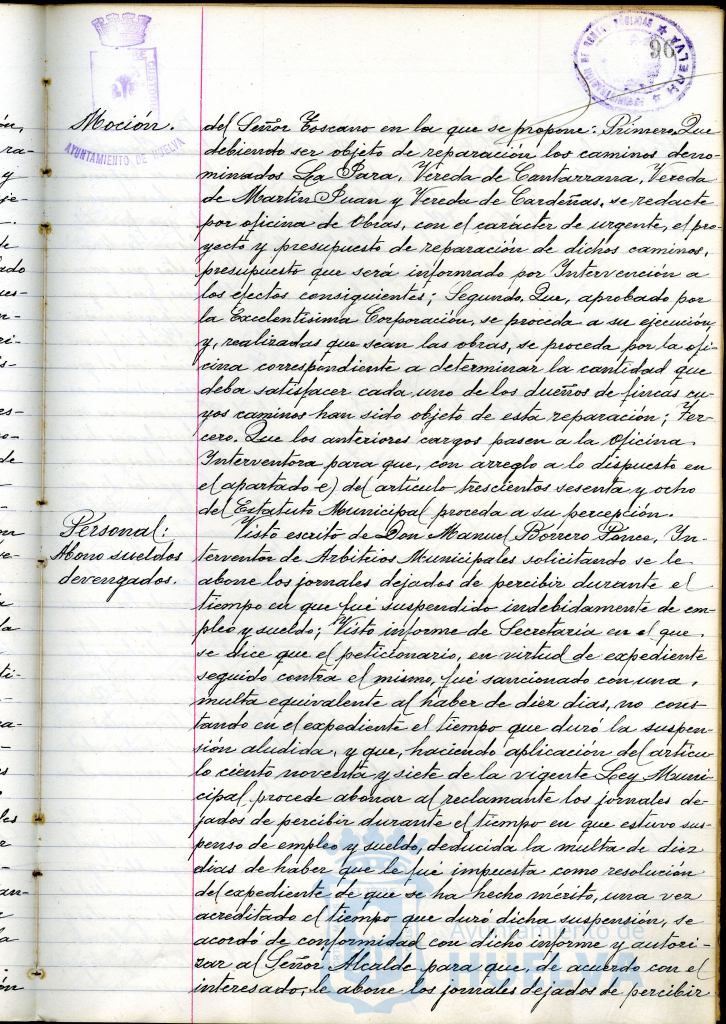 96
HUELVA
AYUNTAMIENTO DE HUELVA
Moción.
del Señor Toscano en la que se propone: Primero. Que
debiendo ser objeto de reparación los caminos deno-
minados La Para, Vereda de Cantarrana, Vereda
de Martín Juan y Vereda de Cardeñas, se redacte
por oficina de Obras, con el carácter de urgente, el pro-
yecto y presupuesto de reparación de dichos caminos,
presupuesto que será informado por Intervención a
los efectos consiguientes; Segundo. Que, aprobado por
la Excelentísima Corporación, se proceda a su ejecución,
y, realizadas que sean las obras, se proceda por la ofi-
cina correspondiente a determinar la cantidad que
deba satisfacer cada uno de los dueños de fincas cu-
yos caminos han sido objeto de esta reparación; Ter-
cero. Que los anteriores cargos pasen a la Oficina
Interventora para que, con arreglo a lo dispuesto en
el apartado e) del artículo trescientos sesenta y ocho
del Estatuto Municipal proceda a su percepción.
Personal:
Abono sueldos
devengados.
Visto escrito de Don Manuel Borrero Ponce, In-
terventor de Arbitrios Municipales solicitando se le
abone los jornales dejados de percibir durante el
tiempo en que fué suspendido indebidamente de em-
pleo y sueldo; Visto informe de Secretaría en el que
se dice que el peticionario, en virtud de expediente
seguido contra el mismo, fué sancionado con una
multa equivalente al haber de diez días, no cons-
tando en el expediente el tiempo que duró la suspen-
sión aludida, y que, haciendo aplicación del artícu-
lo ciento noventa y siete de la vigente Ley Muni-
cipal procede abonar al reclamante los jornales de-
jados de percibir durante el tiempo en que estuvo sus-
penso de empleo y sueldo, deducida la multa de diez
días de haber que le fué impuesta como resolución
del expediente de que se ha hecho mérito, una vez
acreditado el tiempo que duró dicha suspensión, se
acordó de conformidad con dicho informe y autori-
zar al Señor Alcalde para que, de acuerdo con el
interesado, le abone los jornales dejados de percibir
Ayuntamiento de
HUELVA